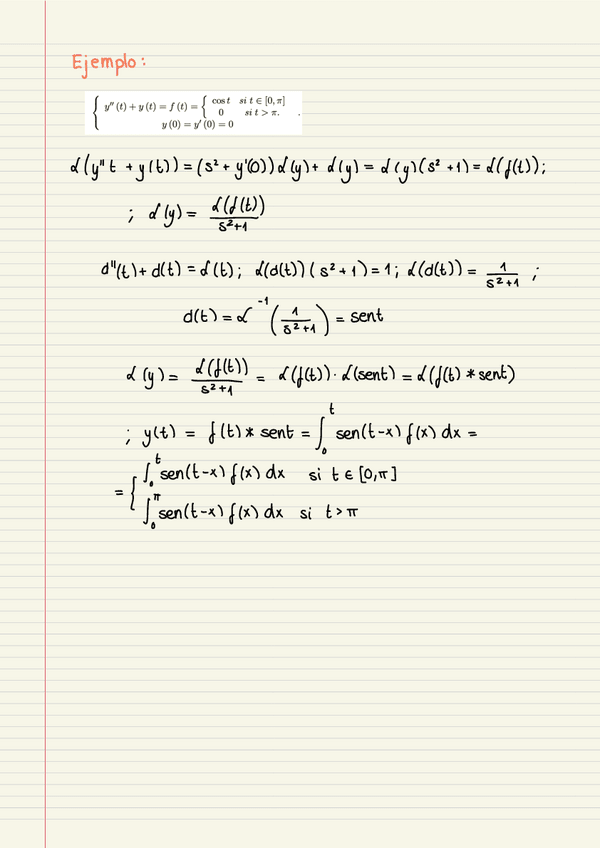 Ejemplo:
{ y″(t) + y(t) = f(t) = { cos t si t ∈ [0, π]
0 si t > π. .
y(0) = y′(0) = 0
ℒ(y″t + y(t)) = (s² + y'(0))ℒ(y) + ℒ(y) = ℒ(y)(s² + 1) = ℒ(f(t));
; ℒ(y) = ℒ(f(t)) / s²+1
d″(t) + d(t) = ℒ(t); ℒ(d(t))(s² + 1) = 1; ℒ(d(t)) = 1 / s²+1 ;
d(t) = ℒ⁻¹(1 / s²+1) = sent
ℒ(y) = ℒ(f(t)) / s²+1 = ℒ(f(t)) · ℒ(sent) = ℒ(f(t) * sent)
; y(t) = f(t) * sent = ∫₀ᵗ sen(t-x) f(x) dx =
= { ∫₀ᵗ sen(t-x) f(x) dx si t ∈ [0, π]
∫₀^π sen(t-x) f(x) dx si t > π